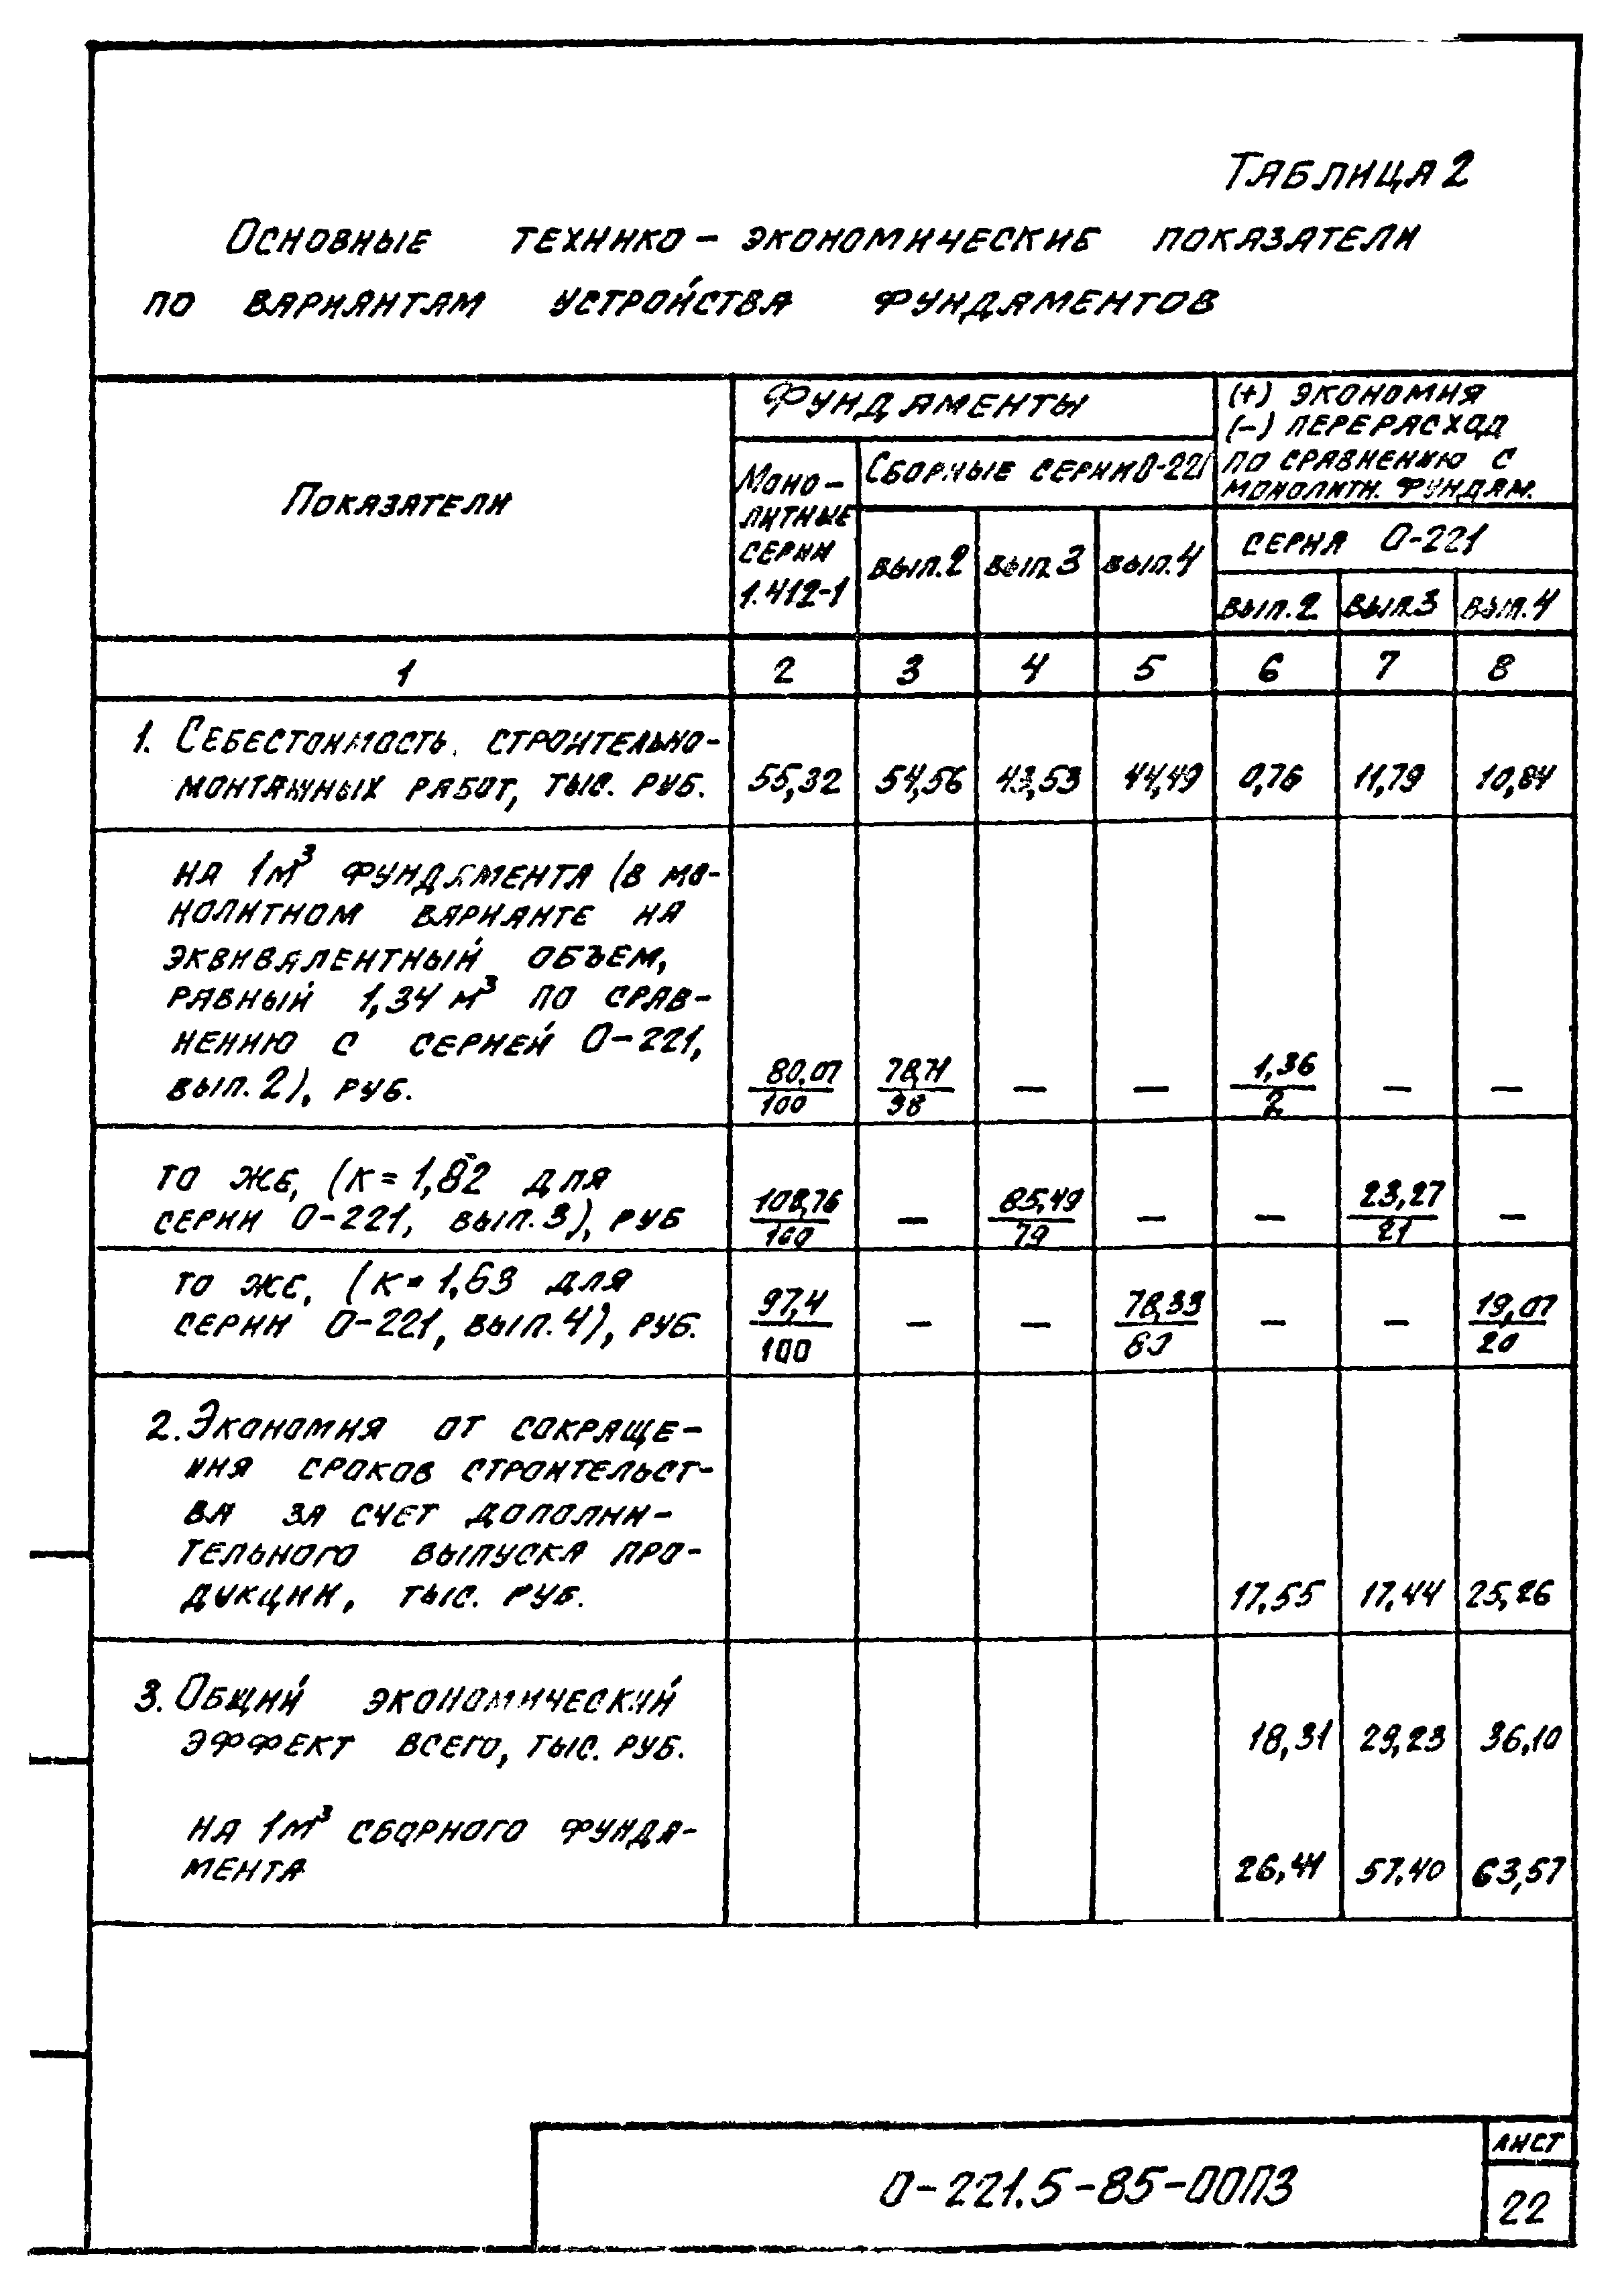 Таблица 2
Основные технико-экономические показатели
по вариантам устройства фундаментов
Показатели
Фундаменты
(+) экономия
(-) перерасход
по сравнению с
монолитн. фундам.
Моно-
литные
серии
1.412-1
Сборные серии 0-221
вып.2 вып.3 вып.4
серия 0-221
вып.2 вып.3 вып.4
1 2 3 4 5 6 7 8
1. Себестоимость строительно-
монтажных работ, тыс. руб. 55,32 54,56 43,53 44,49 0,76 11,79 10,84
на 1м³ фундамента (в мо-
нолитном варианте на
эквивалентный объем,
равный 1,34 м³ по срав-
нению с серией 0-221,
вып.2), руб. 80,07/100 78,71/98 – – 1,36/2 – –
то же, (к=1,82 для
серии 0-221, вып.3), руб 108,76/100 – 85,49/79 – – 23,27/21 –
то же, (к=1,63 для
серии 0-221, вып.4), руб. 97,4/100 – – 78,33/80 – – 19,07/20
2. Экономия от сокраще-
ния сроков строительст-
ва за счет дополни-
тельного выпуска про-
дукции, тыс. руб. 17,55 17,44 25,26
3. Общий экономический
эффект всего, тыс. руб. 18,31 29,23 36,10
на 1м³ сборного фунда-
мента 26,41 57,40 63,57
0-221.5-85-00ПЗ
лист
22